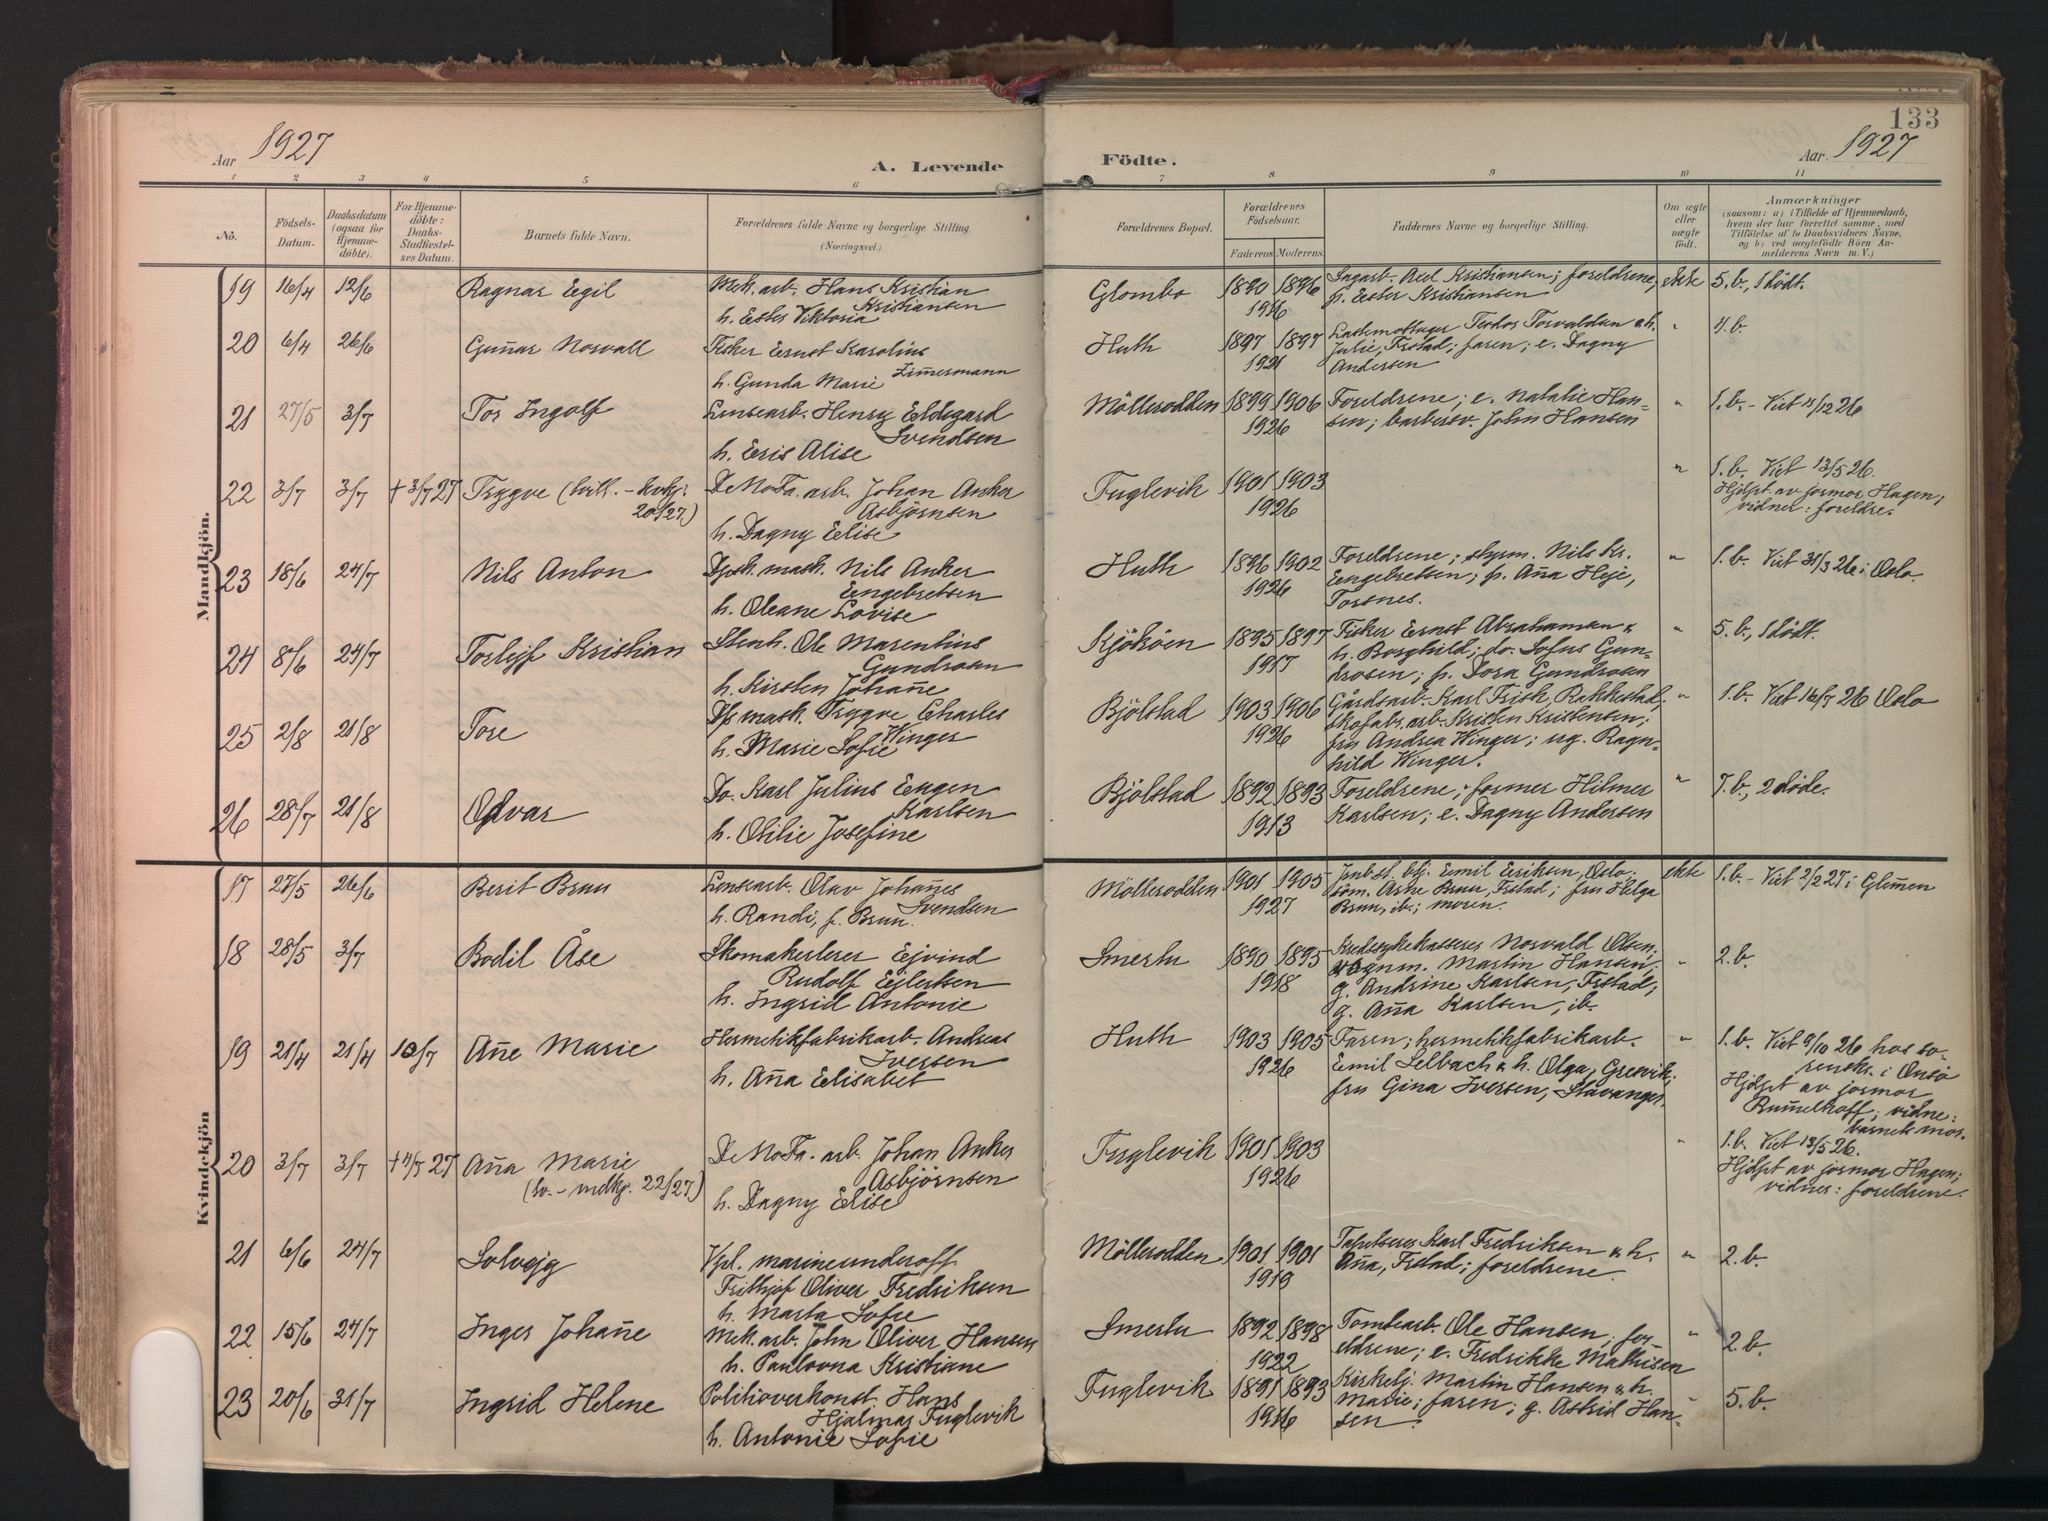 133
Aar 1927
A. Levende Födte.
Aar 1927
1 2 3 4 5 6 7 8 9 10 11
No.
Födsels-
Datum.
Daabsdatum
(ogsaa for
Hjemme-
döbte).
For Hjemme-
döbte:
Daabs-
Stadfæstel-
ses Datum.
Barnets fulde Navn.
Forældrenes fulde Navne og borgerlige Stilling.
(Næringsvei.)
Forældrenes Bopæl.
Forældrenes
Födselsaar.
Faderens Moderens.
Faddernes Navne og borgerlige Stilling.
Om ægte
eller
uægte
født.
Anmærkninger
(saasom: a) i Tilfælde af Hjemmedaab,
hvem der har forrettet samme, med
Tilföielse af to Daabsvidners Navne,
og b) ved uægtefödte Börn An-
melderens Navn m. V.)
Mandkjön.
19 16/4 12/6 Ragnar Egil Mek. arb. Hans Kristian
Kristiansen
h. Ester Viktoria
Glombo 1890 1896
1916
Sagarb. Axel Kristiansen; foreldrene;
p. Ester Kristiansen
ekte 5. b., 1 dödt.
20 6/4 26/6 Gun̄ar Norvall Fisker Ernst Karolius
Zim̄ermann
h. Gunda Marie
Huth 1897 1897
1921
Lastemottager Teodor Torvaldsen & h.
Julie, Frstad; faren; e. Dagny
Andersen
" 4. b.
21 27/5 3/7 Tor Ingolf Lensearb. Henry Eldegard
Svendsen
h. Eris Alise
Möllerodden 1899 1906
1926
Foreldrene; e. Natalie Han-
sen; barbersv. John Hansen
" 1. b. - Viet 11/12 26
22 3/7 3/7 + 3/7 27 Trygve (tvill. - kvkj.
20/27.)
De NoFa. arb. Johan Anker
Asbjörnsen
h. Dagny Elise
Fuglevik 1901 1903
1926
" 1. b. Viet 13/5 26.
Hjdpt av jormor Hagen;
vidner: foreldre.
23 18/6 24/7 Nils Anton Dpsk. mask. Nils Anker
Engebretsen
h. Oleane Lovise
Huth 1896 1902
1926
Foreldrene; styrm. Nils Kr.
Engebretsen; p. An̄a Heje,
Torsnes.
" 1. b. Viet 31/3 26 i Oslo.
24 8/6 24/7 Torlejf Kristian Stenh. Ole Marentius
Gundrosen
h. Kirsten Johan̄e
Kjököen 1895 1897
1917
Fisker Ernst Abrahamsen &
h. Borghild; do. Sofus Gun-
drosen; p. Dora Gundrosen
" 5. b., 1 dödt.
25 2/8 21/8 Tore Dps mask. Trygve Charles
Winger
h. Marie Sofie
Bjölstad 1903 1906
1926
Gårdsarb. Karl Frisk, Rakkestad;
skofabr. arb. Kristen Kristensen;
fru Andrea Winger; ug. Ragn-
hild Winger.
" 1. b. Viet 16/7 26 Oslo
26 28/7 21/8 Odvar Do. Karl Julius Eugen
Karlsen
h. Otilie Josefine
Bjölstad 1892 1893
1913
Foreldrene; former Hilmer
Karlsen; e. Dagny Andersen
" 7. b., 2 döde.
Kvindekjön
17 27/5 26/6 Berit Brun Lensearb. Olav Johan̄es
Svendsen
h. Randi, f. Brun.
Möllerodden 1901 1905
1927
Jernb.st. btj. Emil Eriksen, Oslo;
söm. Arne Brun, Frstad; fru Helga
Brun, ib.; moren.
ekte 1. b. - Viet 2/2 27 i Glem̄en
18 28/5 3/7 Bodil Åse Skomakerlærer Ejvind
Rudolf Ejlertsen
h. Ingrid Antonie
Smertu 1890 1895
1918
Kredsykekasserer Norvald Olsen;
vognm. Martin Hansen;
g. Andrine Karlsen, Frstad;
g. An̄a Karlsen, ib.
" 2. b.
19 21/4 21/4 10/7 An̄e Marie Hermetikfabrikarb. Andreas
Iversen
h. An̄a Elisabet
Huth 1903 1905
1926
Faren; hermetikfabrikarb.
Emil Selbach & h. Olga, Gresvik;
fru Gina Iversen, Stavanger.
" 1. b. Viet 9/10 26 hos so-
rensk. i Onsö
Hjdpt av jormor
Rum̄elhoff; vidne:
barnets mor.
20 3/7 3/7 + 4/7 27 An̄a Marie
(tv. - mdkj. 22/27.)
De NoFa. arb. Johan Anker
Asbjörnsen
h. Dagny Elise
Fuglevik 1901 1903
1926
" 1. b. Viet 13/5 26.
Hjdpt av jormor Hagen;
vidner: foreldrene.
21 6/6 24/7 Solvejg Vpl. marineunderoff.
Frithjof Oliver Fredriksen
h. Marta Sofie
Möllerodden 1901 1901
1919
Tapetserer Karl Fredriksen & h.
An̄a, Frstad; foreldrene.
" 2. b.
22 15/6 24/7 Inger Johan̄e Mek. arb. John Oliver Hansen
h. Paulovna Kristiane
Smertu 1892 1898
1922
Tomtearb. Ole Hansen; for-
eldrene; e. Fredrikke Mathisen
" 2. b.
23 20/6 31/7 Ingrid Helene Politioverkonst. Hans
Hjalmar Fuglevik
h. Antonie Sofie
Fuglevik 1891 1893
1916
Kirketj. Martin Hansen & h.
Marie; faren; g. Astrid Han-
sen.
" 5. b.